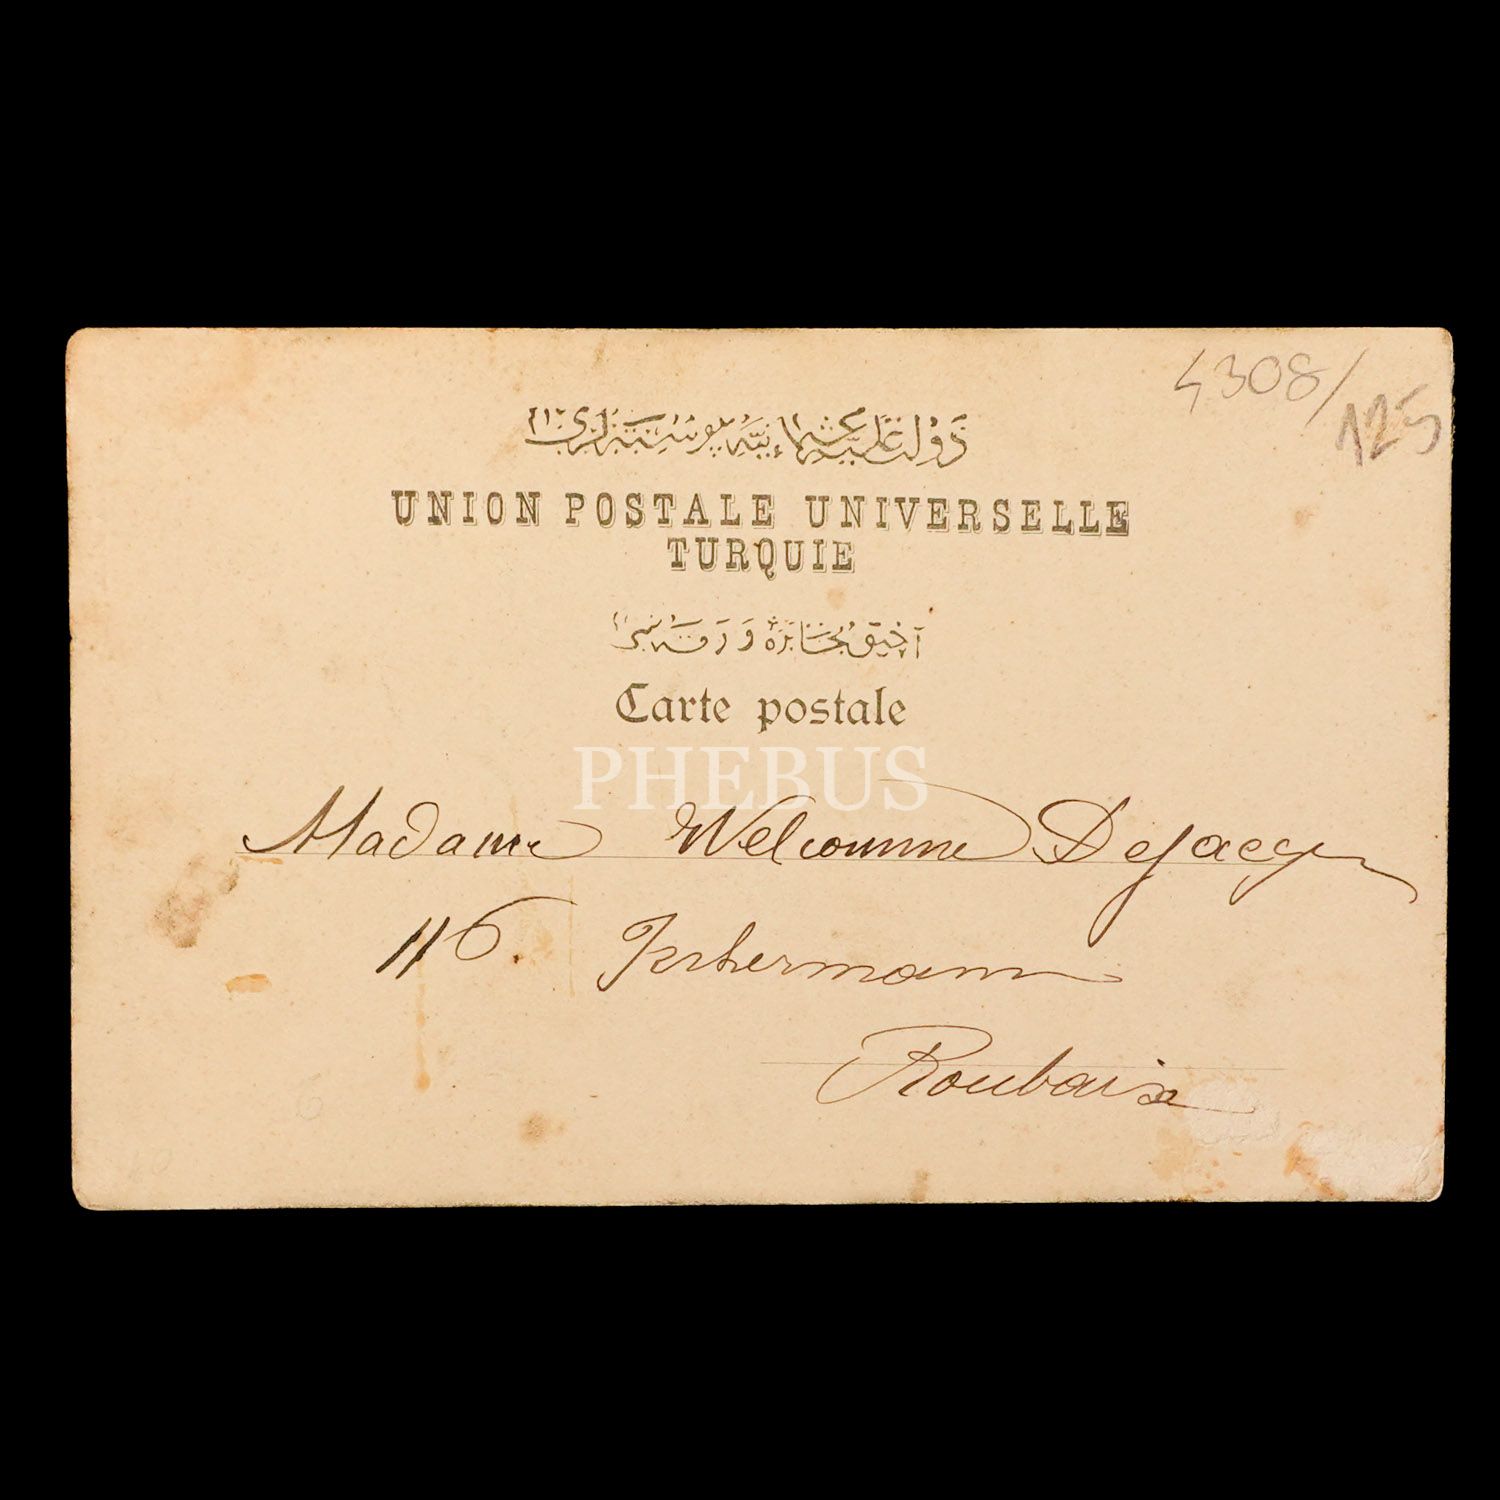 4308/125
دولت علیه عثمانیه پوسته لری
UNION POSTALE UNIVERSELLE
TURQUIE
آچیق مخابره ورقه سی
Carte postale
PHEBUS
Madame Welcomme DeJaeger
116.
Roubaix